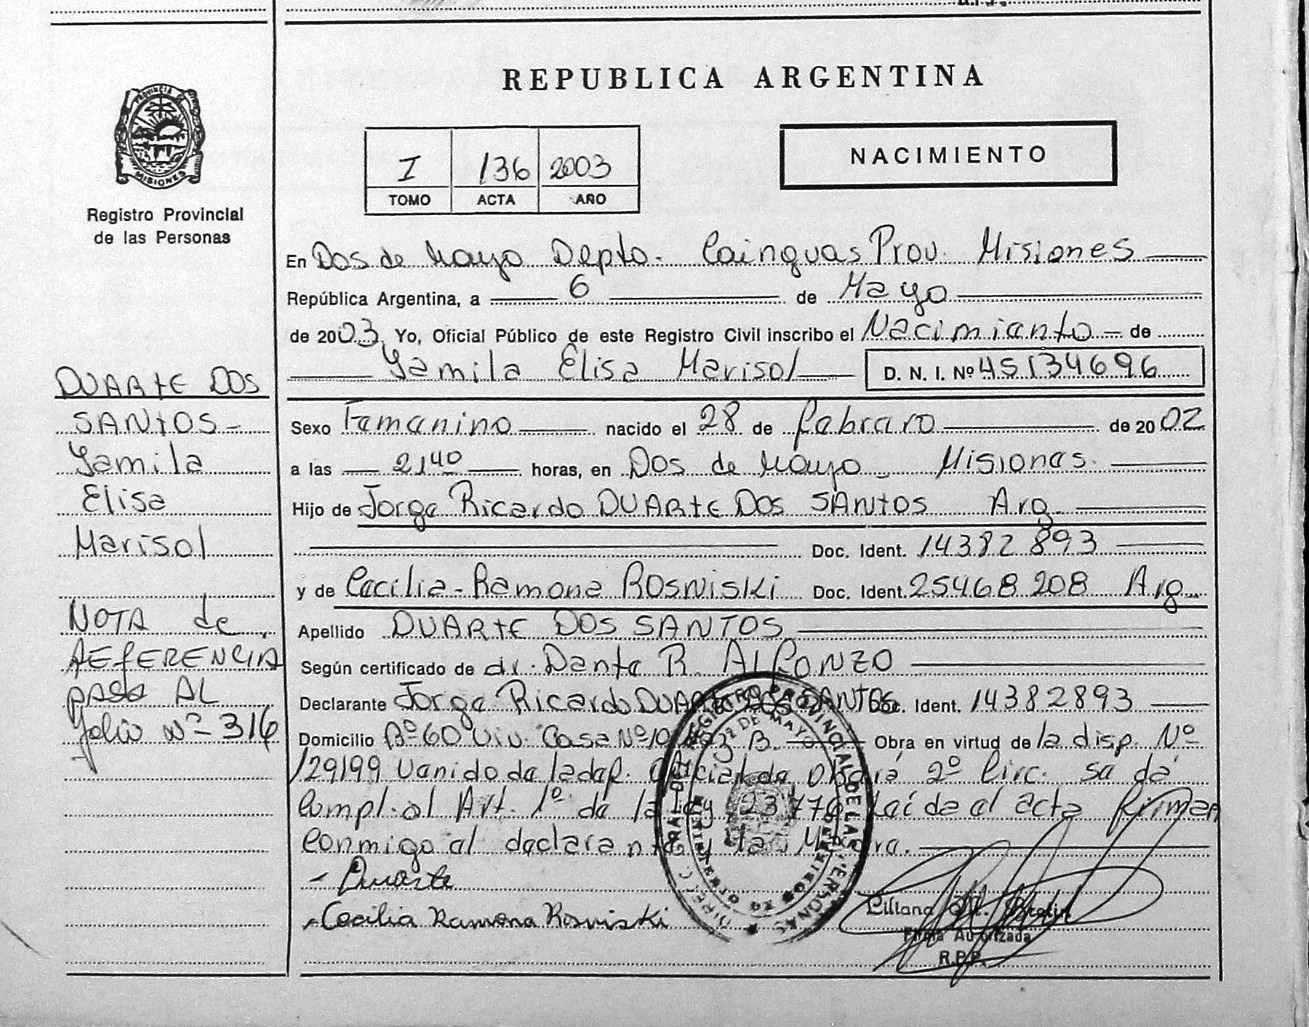 REPUBLICA ARGENTINA
PROVINCIA DE
MISIONES
Registro Provincial
de las Personas
I 136 2003
TOMO ACTA AÑO
NACIMIENTO
En Dos de Mayo Depto. Cainguas Prov. Misiones
República Argentina, a 6 de Mayo
de 2003 Yo, Oficial Público de este Registro Civil inscribo el Nacimianto de
Yamila Elisa Marisol D. N. I. Nº 45134696
Sexo Famanino nacido el 28 de fabraro de 20 02
a las 21 40 horas, en Dos de Mayo Misionas.
Hijo de Jorge Ricardo DUARTE DOS SANTOS Arg
Doc. Ident. 14382 893
y de Cacilia Ramona ROSNISKI Doc. Ident. 25468 208 Arg
Apellido DUARTE DOS SANTOS
Según certificado de dr. Danta R. ALFONZO
Declarante Jorge Ricardo DUARTE DOS SANTOS Doc. Ident. 14382893
Domicilio Bº 60 Viv. Casa Nº 10 B. Obra en virtud de la disp. Nº
129199 Vanido da la dap. oficial da Obará 2º Circ. sa dá
Compl. al Art. 1º da la Ley 23776 Laída al acta firman
Conmigo al daclaranta y la Madra.
- Duarte
- Cecilia Ramona Rosniski
DUARTE DOS
SANTOS -
Yamila
Elisa
Marisol
NOTA de
REFERENCIA
pasa AL
folio Nº 316
DIREC. GRAL. DEL REGISTRO PROVINCIAL DE LAS PERSONAS
2 DE MAYO
MISIONES
Liliana
Firma Autorizada
R.P.P.